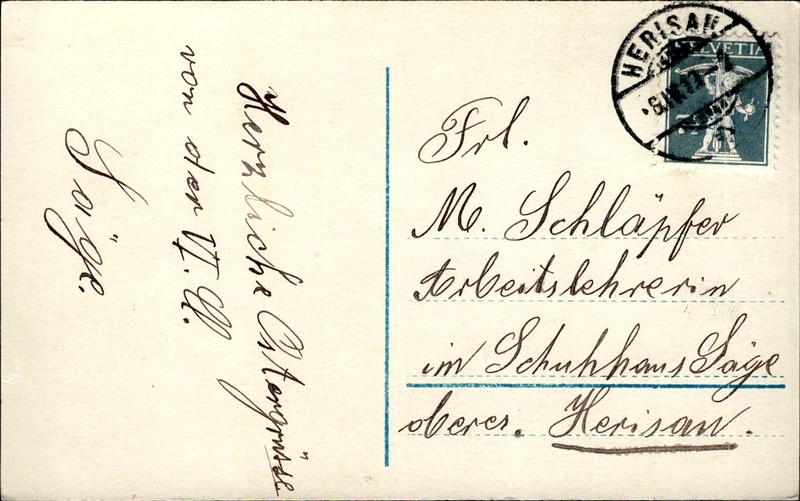 Herzliche Ostergrüsse
von der
Säge.
HERISAU
HELVETIA
Frl.
M. Schläpfer
Arbeitslehrerin
im Schuhhaus Säge
oberes. Herisau.